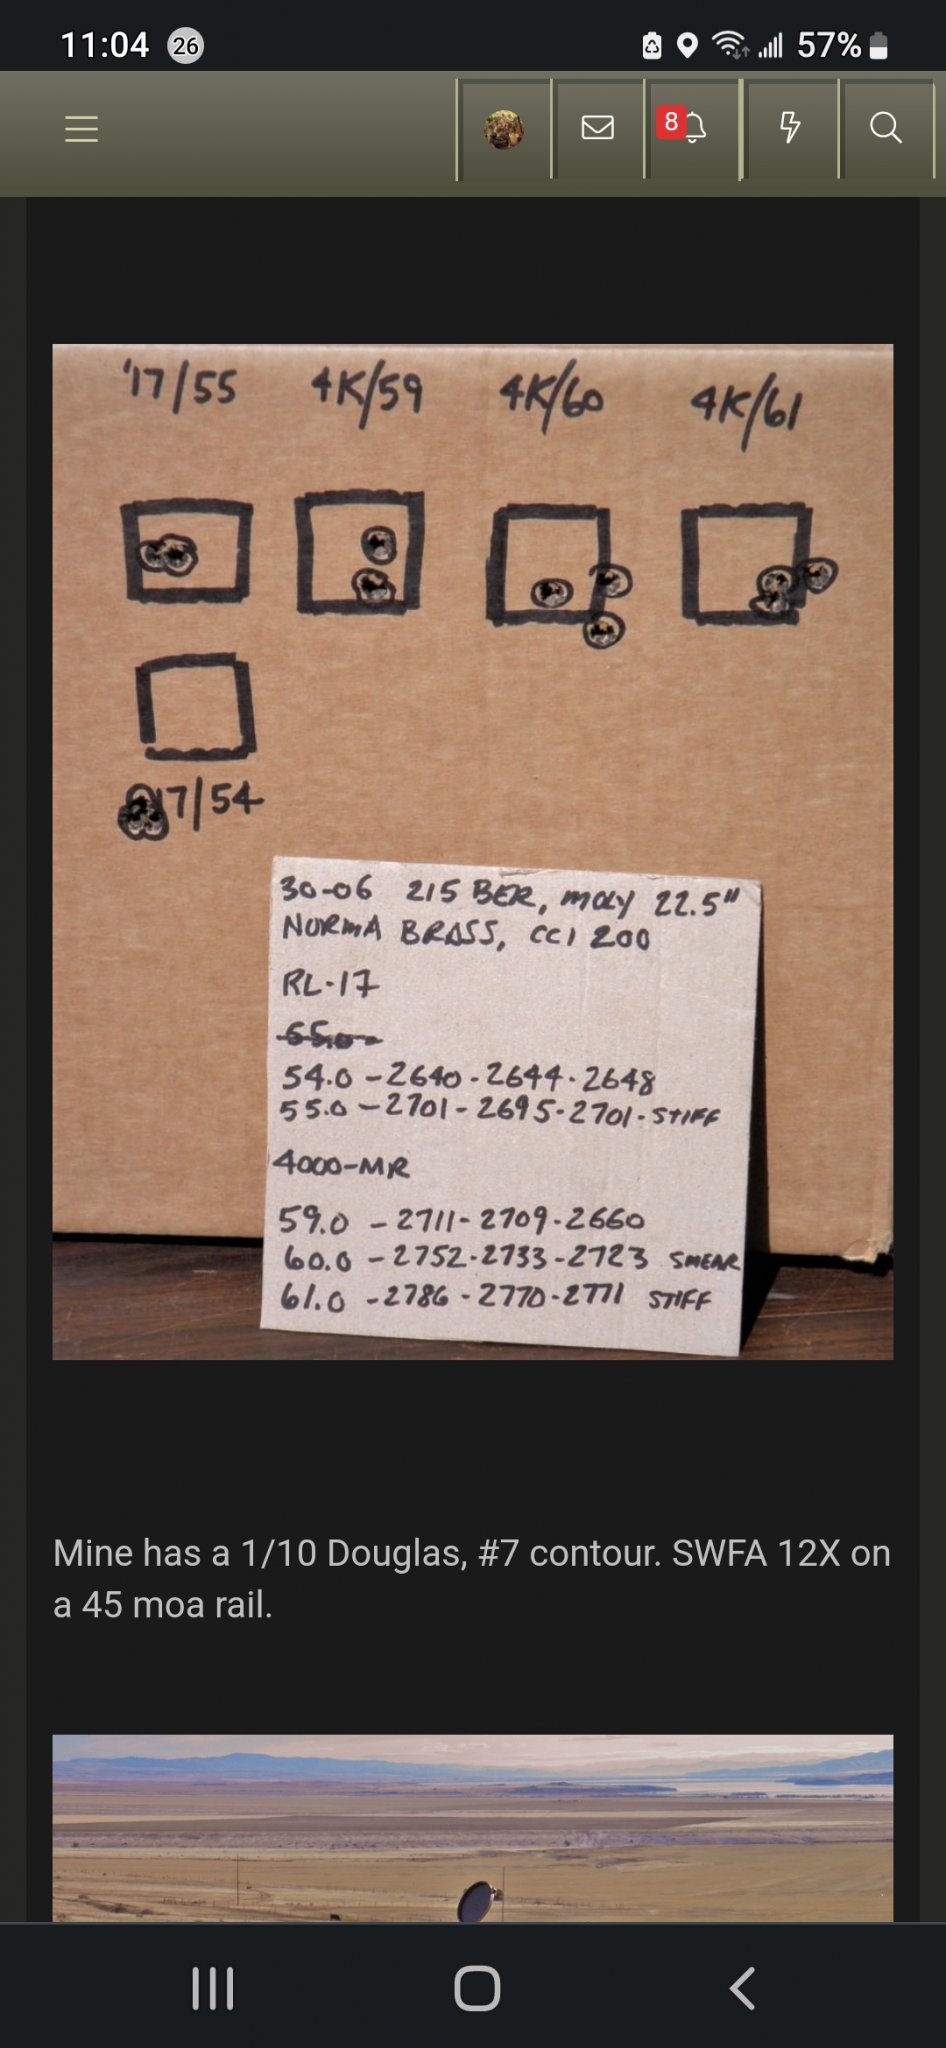 11:04 26 57%
8
'17/55 4K/59 4K/60 4K/61
17/54
30-06 215 BER, MOLY 22.5"
NORMA BRASS, CCI 200
RL-17
55.0
54.0 - 2640 - 2644 - 2648
55.0 - 2701 - 2695 - 2701 - STIFF
4000-MR
59.0 - 2711 - 2709 - 2660
60.0 - 2752 - 2733 - 2723 SMEAR
61.0 - 2786 - 2770 - 2771 STIFF
Mine has a 1/10 Douglas, #7 contour. SWFA 12X on
a 45 moa rail.